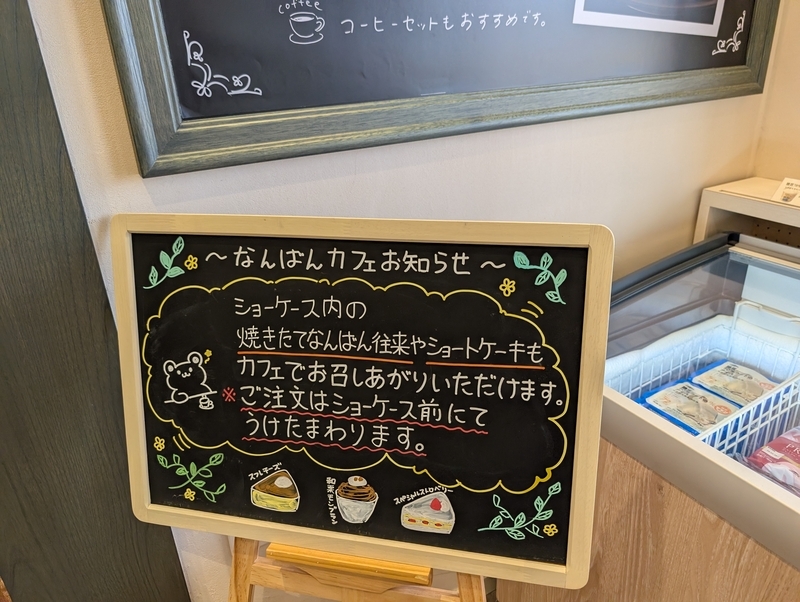 coffee
コーヒーセットもおすすめです。
～なんばんカフェお知らせ～
ショーケース内の
焼きたてなんばん往来やショートケーキも
カフェでお召しあがりいただけます。
※ご注文はショーケース前にて
うけたまわります。
スフレチーズ
和栗モンブラン
スペシャルストロベリー